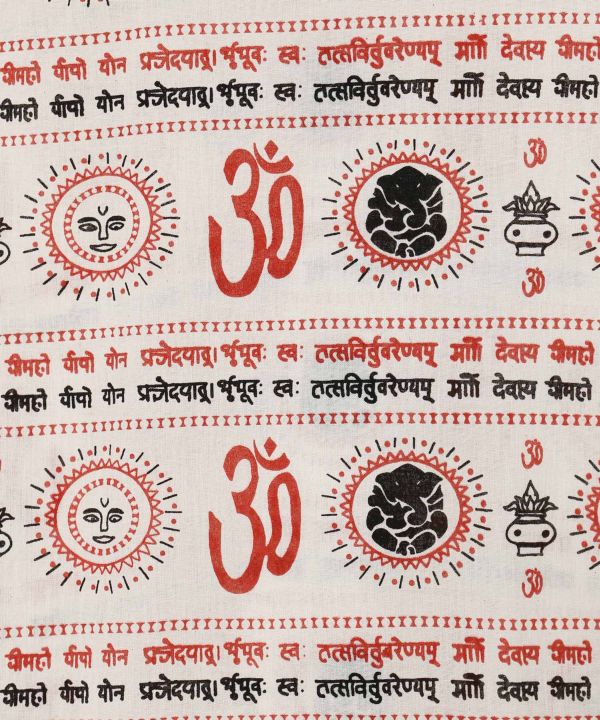 धीमहो र्यापो योन प्रजेदयाद्। र्भूभूवः स्वः तत्सविर्तुवरेण्यम् र्मागो देवास्य धीमहो
धीमहो र्यापो योन प्रजेदयाद्। र्भूभूवः स्वः तत्सविर्तुवरेण्यम् र्मागो देवास्य धीमहो
ॐ
ॐ
ॐ
धीमहो र्यापो योन प्रजेदयाद्। र्भूभूवः स्वः तत्सविर्तुवरेण्यम् र्मागो देवास्य धीमहो
धीमहो र्यापो योन प्रजेदयाद्। र्भूभूवः स्वः तत्सविर्तुवरेण्यम् र्मागो देवास्य धीमहो
ॐ
ॐ
ॐ
धीमहो र्यापो योन प्रजेदयाद्। र्भूभूवः स्वः तत्सविर्तुवरेण्यम् र्मागो देवास्य धीमहो
धीमहो र्यापो योन प्रजेदयाद्। र्भूभूवः स्वः तत्सविर्तुवरेण्यम् र्मागो देवास्य धीमहो